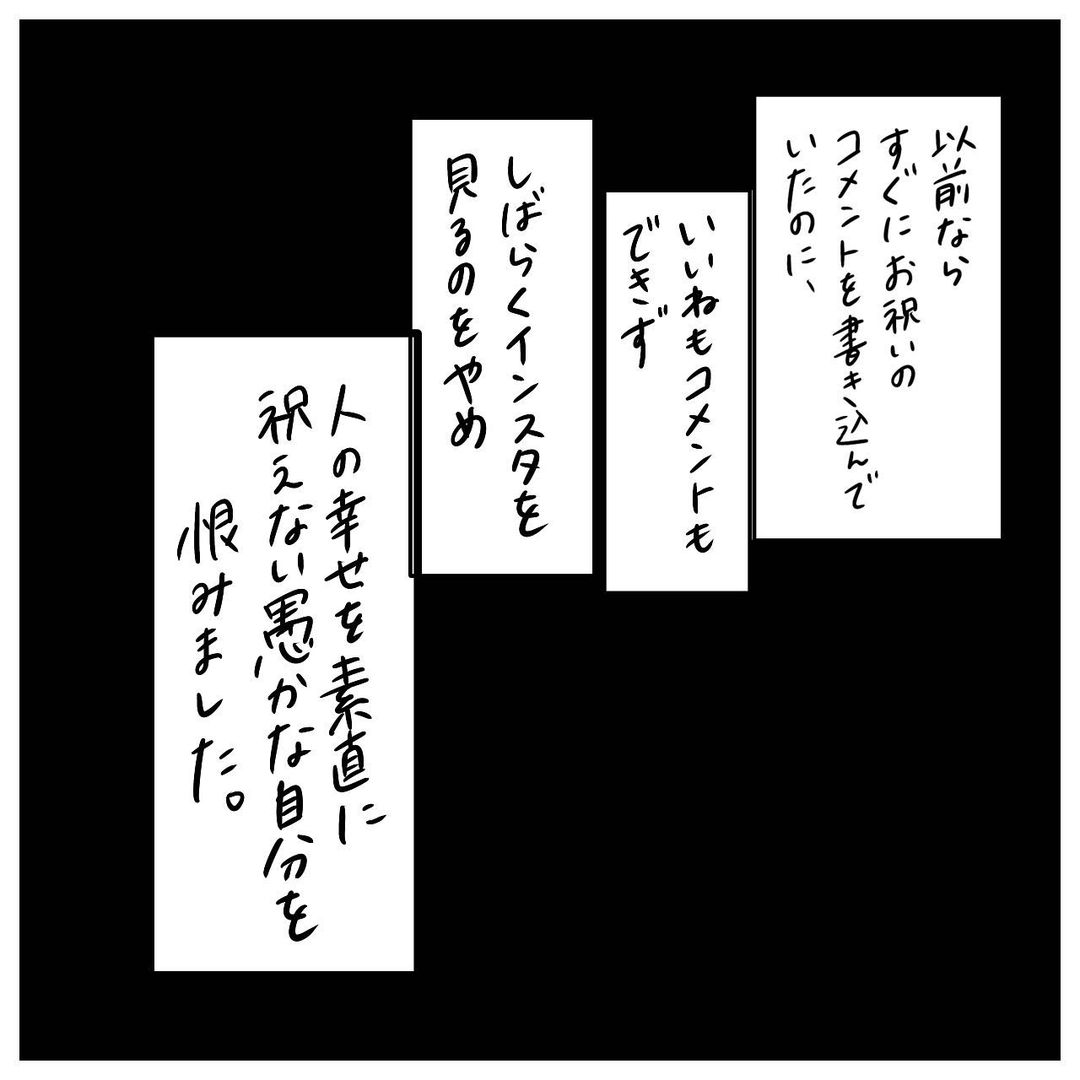 以前なら
すぐにお祝いの
コメントを書き込んで
いたのに、
いいねもコメントも
できず
しばらくインスタを
見るのをやめ
人の幸せを素直に
祝えない愚かな自分を
恨みました。